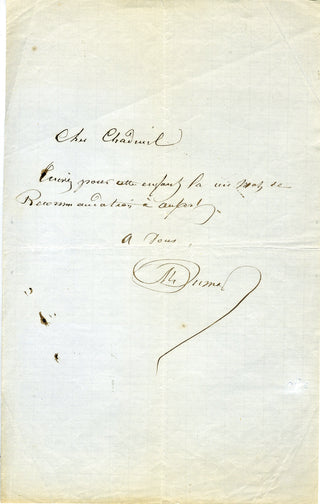 Cher Chadeuil
pour cette enfant la un mot de
Recommandation à
A vous,
Al Dumas